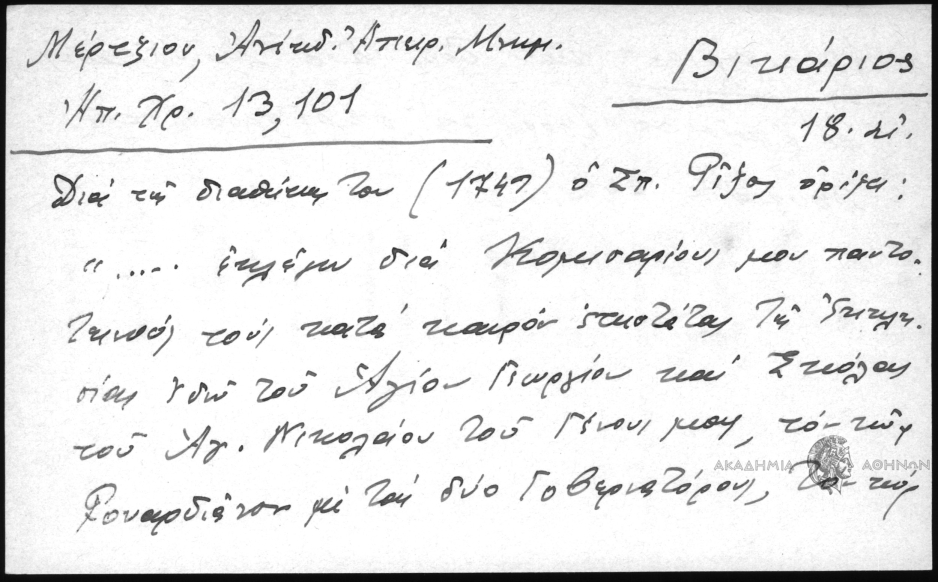 Μέρτζιου, Ἀνέκδ. Ἠπειρ. Μνημ.
Ἠπ. Χρ. 13,101
Βικάριος
18. αἰ.
Διά τῆς διαθήκης του (1747) ὁ Σπ. Ρίζος ὁρίζει:
"..... ἐκλέγω διά Κομισαρίους μου παντο-
τεινούς τούς κατά καιρόν ἐπιστάτας τῆς Ἐκκλη-
σίας ἐδῶ τοῦ Ἁγίου Γεωργίου καί Σκόλας
τοῦ Ἁγ. Νικολάου τοῦ Γένους μας, τόν κύρ
μέ τούς δύο Γοβερνατόρους, τόν κύρ
ΑΚΑΔΗΜΙΑ ΑΘΗΝΩΝ